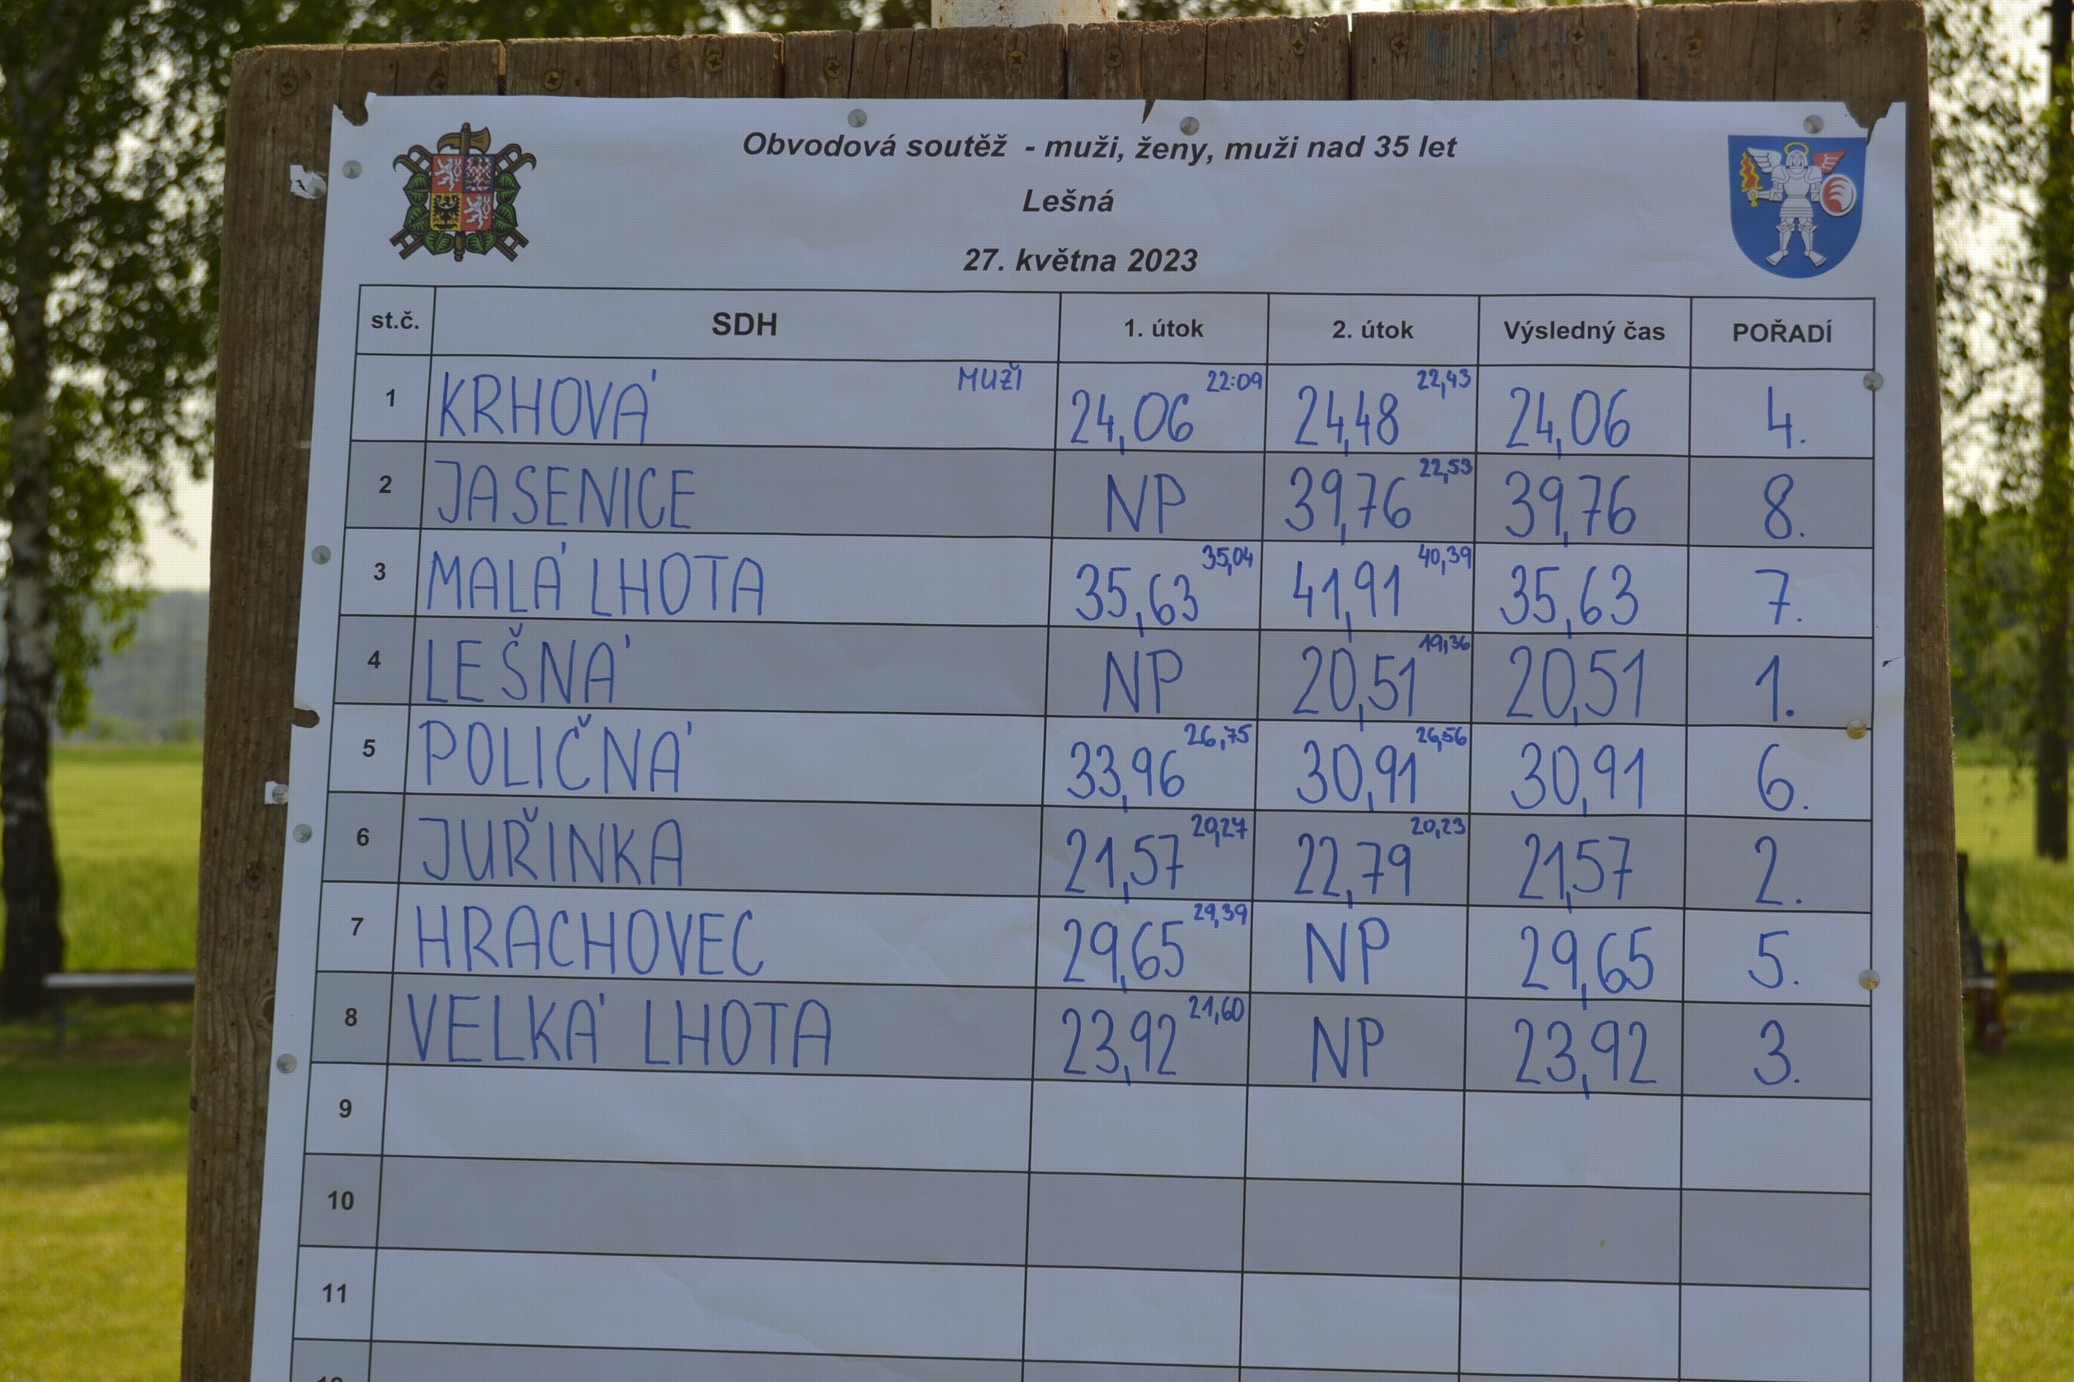 Obvodová soutěž - muži, ženy, muži nad 35 let
Lešná
27. května 2023
st.č. SDH 1. útok 2. útok Výsledný čas POŘADÍ
1 KRHOVÁ MUŽI 24,06 22:09 24,48 22,43 24,06 4.
2 JASENICE NP 39,76 22,53 39,76 8.
3 MALÁ LHOTA 35,63 35,04 41,91 40,39 35,63 7.
4 LEŠNÁ NP 20,51 19,36 20,51 1.
5 POLIČNÁ 33,96 26,75 30,91 26,56 30,91 6.
6 JUŘINKA 21,57 20,27 22,79 20,23 21,57 2.
7 HRACHOVEC 29,65 29,39 NP 29,65 5.
8 VELKÁ LHOTA 23,92 21,60 NP 23,92 3.
9
10
11